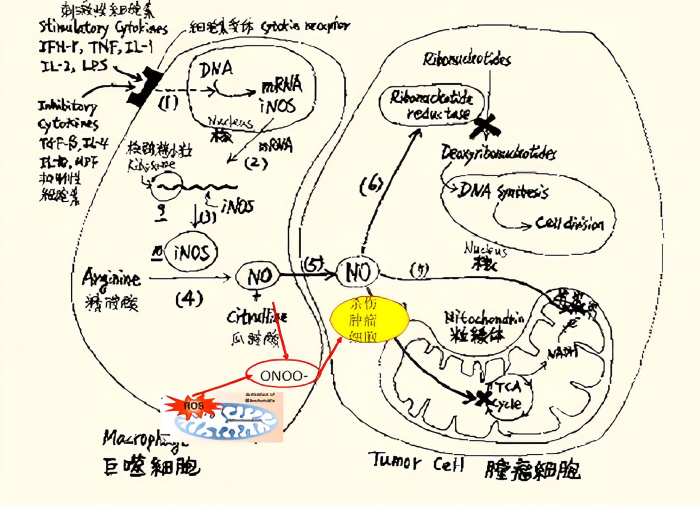 刺激性细胞素
Stimulatory Cytokines
IFN-r, TNF, IL-1
IL-2, LPS
细胞素受体 Cytokin receptor
Inhibitory
Cytokines
TGF-B, IL-4
抑制性
细胞素
(1)
DNA
mRNA
iNOS
Nucleus
核
(2)
mRNA
Ribosome
iNOS
(3)
iNOS
Arginine
精胺酸
(4)
NO
+
Citrulline
瓜胺酸
ONOO-
ROS
Macrophage
巨噬細胞
(5)
NO
杀伤
肿瘤
细胞
(6)
Ribonucleotides
Ribonucleotide
reductase
Deoxyribonucleotides
DNA synthesis
Cell division
Nucleus
核
Mitochondria
粒線体
NADH
e
TCA
Cycle
Tumor Cell 腫瘤細胞